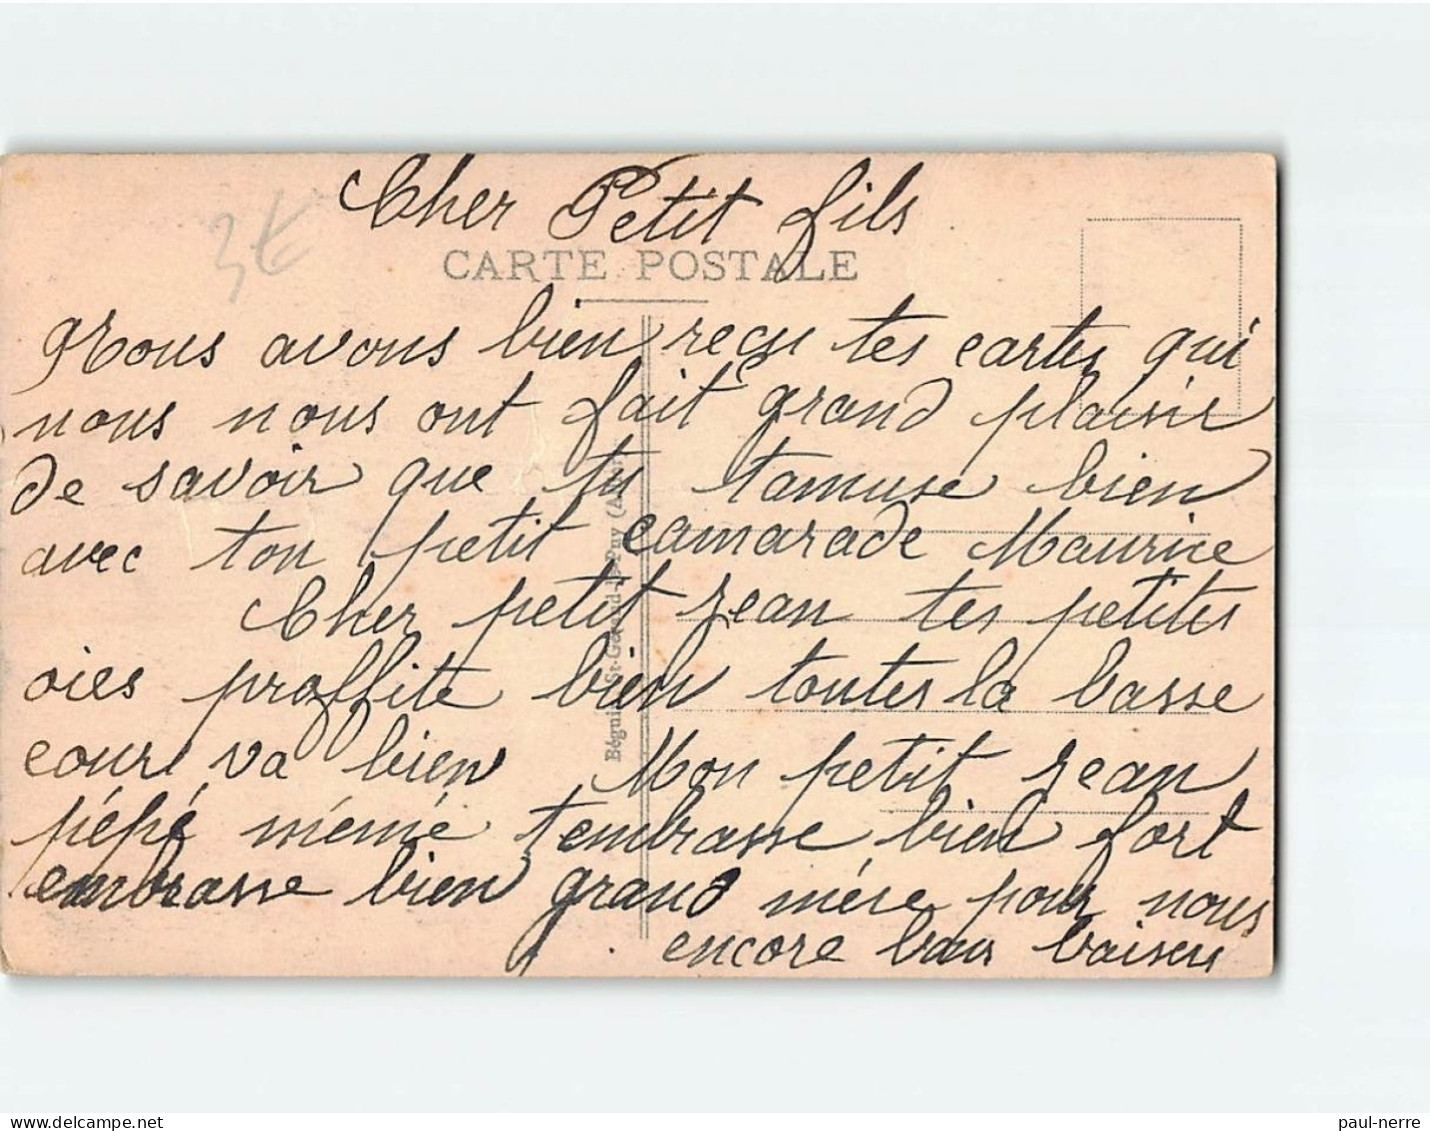 3€
Cher Petit fils
CARTE POSTALE
Nous avons bien reçu tes cartes qui
nous nous ont fait grand plaisir
de savoir que tu tamuse bien
avec ton petit camarade Maurice
Cher petit Jean tes petites
oies proffite bien toutes la basse
cour va bien Mon petit Jean
pépé mémé t'embrasse bien fort
embrasse bien grand mére pour nous
encore baisers
St-Gérand-le-Puy
paul-nerre